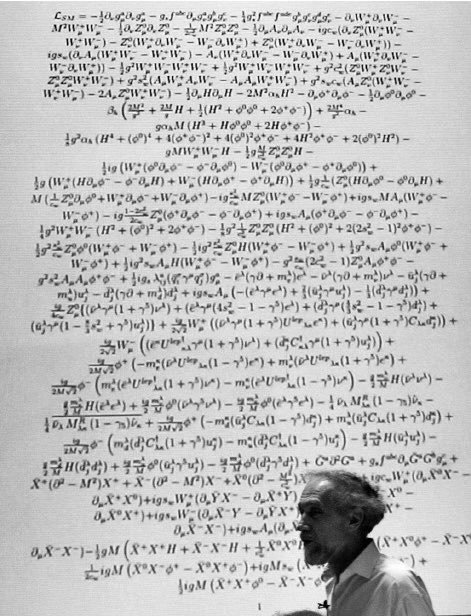 $\mathcal{L}_{SM} = -\frac{1}{2}\partial_\nu g^a_\mu \partial_\nu g^a_\mu - g_s f^{abc}\partial_\mu g^a_\nu g^b_\mu g^c_\nu - \frac{1}{4}g^2_s f^{abc}f^{ade}g^b_\mu g^c_\nu g^d_\mu g^e_\nu - \partial_\nu W^+_\mu \partial_\nu W^-_\mu -$
$M^2 W^+_\mu W^-_\mu - \frac{1}{2}\partial_\nu Z^0_\mu \partial_\nu Z^0_\mu - \frac{1}{2c^2_w}M^2 Z^0_\mu Z^0_\mu - \frac{1}{2}\partial_\mu A_\nu \partial_\mu A_\nu - igc_w(\partial_\nu Z^0_\mu(W^+_\mu W^-_\nu -$
$W^+_\nu W^-_\mu) - Z^0_\nu(W^+_\mu \partial_\nu W^-_\mu - W^-_\mu \partial_\nu W^+_\mu) + Z^0_\mu(W^+_\nu \partial_\nu W^-_\mu - W^-_\nu \partial_\nu W^+_\mu)) -$
$igs_w(\partial_\nu A_\mu(W^+_\mu W^-_\nu - W^+_\nu W^-_\mu) - A_\nu(W^+_\mu \partial_\nu W^-_\mu - W^-_\mu \partial_\nu W^+_\mu) + A_\mu(W^+_\nu \partial_\nu W^-_\mu -$
$W^-_\nu \partial_\nu W^+_\mu)) - \frac{1}{2}g^2 W^+_\mu W^-_\mu W^+_\nu W^-_\nu + \frac{1}{2}g^2 W^+_\mu W^-_\nu W^+_\mu W^-_\nu + g^2 c^2_w(Z^0_\mu W^+_\mu Z^0_\nu W^-_\nu -$
$Z^0_\mu Z^0_\mu W^+_\nu W^-_\nu) + g^2 s^2_w(A_\mu W^+_\mu A_\nu W^-_\nu - A_\mu A_\mu W^+_\nu W^-_\nu) + g^2 s_w c_w(A_\mu Z^0_\nu(W^+_\mu W^-_\nu -$
$W^+_\nu W^-_\mu) - 2A_\mu Z^0_\mu W^+_\nu W^-_\nu) - \frac{1}{2}\partial_\mu H \partial_\mu H - 2M^2 \alpha_h H^2 - \partial_\mu \phi^+ \partial_\mu \phi^- - \frac{1}{2}\partial_\mu \phi^0 \partial_\mu \phi^0 -$
$\beta_h \left(\frac{2M^2}{g^2} + \frac{2M}{g}H + \frac{1}{2}(H^2 + \phi^0\phi^0 + 2\phi^+\phi^-)\right) + \frac{2M^4}{g^2}\alpha_h -$
$g\alpha_h M (H^3 + H\phi^0\phi^0 + 2H\phi^+\phi^-) -$
$\frac{1}{8}g^2\alpha_h (H^4 + (\phi^0)^4 + 4(\phi^+\phi^-)^2 + 4(\phi^0)^2\phi^+\phi^- + 4H^2\phi^+\phi^- + 2(\phi^0)^2H^2) -$
$gMW^+_\mu W^-_\mu H - \frac{1}{2}g\frac{M}{c^2_w}Z^0_\mu Z^0_\mu H -$
$\frac{1}{2}ig (W^+_\mu(\phi^0\partial_\mu\phi^- - \phi^-\partial_\mu\phi^0) - W^-_\mu(\phi^0\partial_\mu\phi^+ - \phi^+\partial_\mu\phi^0)) +$
$\frac{1}{2}g (W^+_\mu(H\partial_\mu\phi^- - \phi^-\partial_\mu H) + W^-_\mu(H\partial_\mu\phi^+ - \phi^+\partial_\mu H)) + \frac{1}{2}g\frac{1}{c_w}(Z^0_\mu(H\partial_\mu\phi^0 - \phi^0\partial_\mu H) +$
$M (\frac{1}{c_w}Z^0_\mu\partial_\mu\phi^0 + W^+_\mu\partial_\mu\phi^- + W^-_\mu\partial_\mu\phi^+) - ig\frac{s^2_w}{c_w}MZ^0_\mu(W^+_\mu\phi^- - W^-_\mu\phi^+) + igs_w MA_\mu(W^+_\mu\phi^- -$
$W^-_\mu\phi^+) - ig\frac{1-2c^2_w}{2c_w}Z^0_\mu(\phi^+\partial_\mu\phi^- - \phi^-\partial_\mu\phi^+) + igs_w A_\mu(\phi^+\partial_\mu\phi^- - \phi^-\partial_\mu\phi^+) -$
$\frac{1}{4}g^2 W^+_\mu W^-_\mu (H^2 + (\phi^0)^2 + 2\phi^+\phi^-) - \frac{1}{8}g^2\frac{1}{c^2_w}Z^0_\mu Z^0_\mu (H^2 + (\phi^0)^2 + 2(2s^2_w - 1)^2\phi^+\phi^-) -$
$\frac{1}{2}g^2\frac{s^2_w}{c_w}Z^0_\mu\phi^0(W^+_\mu\phi^- + W^-_\mu\phi^+) - \frac{1}{2}ig^2\frac{s^2_w}{c_w}Z^0_\mu H(W^+_\mu\phi^- - W^-_\mu\phi^+) + \frac{1}{2}g^2 s_w A_\mu\phi^0(W^+_\mu\phi^- +$
$W^-_\mu\phi^+) + \frac{1}{2}ig^2 s_w A_\mu H(W^+_\mu\phi^- - W^-_\mu\phi^+) - g^2\frac{s_w}{c_w}(2c^2_w - 1)Z^0_\mu A_\mu\phi^+\phi^- -$
$g^2 s^2_w A_\mu A_\mu\phi^+\phi^- + \frac{1}{2}ig_s \lambda^a_{ij}(\bar{q}^\sigma_i\gamma^\mu q^\sigma_j)g^a_\mu - \bar{e}^\lambda(\gamma\partial + m^\lambda_e)e^\lambda - \bar{\nu}^\lambda(\gamma\partial + m^\lambda_\nu)\nu^\lambda - \bar{u}^\lambda_j(\gamma\partial +$
$m^\lambda_u)u^\lambda_j - \bar{d}^\lambda_j(\gamma\partial + m^\lambda_d)d^\lambda_j + igs_w A_\mu (-(\bar{e}^\lambda\gamma^\mu e^\lambda) + \frac{2}{3}(\bar{u}^\lambda_j\gamma^\mu u^\lambda_j) - \frac{1}{3}(\bar{d}^\lambda_j\gamma^\mu d^\lambda_j)) +$
$\frac{ig}{4c_w}Z^0_\mu\{(\bar{\nu}^\lambda\gamma^\mu(1 + \gamma^5)\nu^\lambda) + (\bar{e}^\lambda\gamma^\mu(4s^2_w - 1 - \gamma^5)e^\lambda) + (\bar{d}^\lambda_j\gamma^\mu(\frac{4}{3}s^2_w - 1 - \gamma^5)d^\lambda_j) +$
$(\bar{u}^\lambda_j\gamma^\mu(1 - \frac{8}{3}s^2_w + \gamma^5)u^\lambda_j)\} + \frac{ig}{2\sqrt{2}}W^+_\mu ((\bar{\nu}^\lambda\gamma^\mu(1 + \gamma^5)U^{lep}{}_{\lambda\kappa}e^\kappa) + (\bar{u}^\lambda_j\gamma^\mu(1 + \gamma^5)C_{\lambda\kappa}d^\kappa_j)) +$
$\frac{ig}{2\sqrt{2}}W^-_\mu ((\bar{e}^\kappa U^{lep\dagger}{}_{\kappa\lambda}\gamma^\mu(1 + \gamma^5)\nu^\lambda) + (\bar{d}^\kappa_j C^\dagger_{\kappa\lambda}\gamma^\mu(1 + \gamma^5)u^\lambda_j)) +$
$\frac{ig}{2M\sqrt{2}}\phi^+ (-m^\kappa_e(\bar{\nu}^\lambda U^{lep}{}_{\lambda\kappa}(1 - \gamma^5)e^\kappa) + m^\lambda_\nu(\bar{\nu}^\lambda U^{lep}{}_{\lambda\kappa}(1 + \gamma^5)e^\kappa) +$
$\frac{ig}{2M\sqrt{2}}\phi^- (m^\lambda_e(\bar{e}^\lambda U^{lep\dagger}{}_{\lambda\kappa}(1 + \gamma^5)\nu^\kappa) - m^\kappa_\nu(\bar{e}^\lambda U^{lep\dagger}{}_{\lambda\kappa}(1 - \gamma^5)\nu^\kappa) - \frac{g}{2}\frac{m^\lambda_\nu}{M}H(\bar{\nu}^\lambda\nu^\lambda) -$
$\frac{g}{2}\frac{m^\lambda_e}{M}H(\bar{e}^\lambda e^\lambda) + \frac{ig}{2}\frac{m^\lambda_\nu}{M}\phi^0(\bar{\nu}^\lambda\gamma^5\nu^\lambda) - \frac{ig}{2}\frac{m^\lambda_e}{M}\phi^0(\bar{e}^\lambda\gamma^5 e^\lambda) - \frac{1}{4}\bar{\nu}_\lambda M^R_{\lambda\kappa}(1 - \gamma_5)\hat{\nu}_\kappa -$
$\frac{1}{4}\overline{\bar{\nu}_\lambda M^R_{\lambda\kappa}(1 - \gamma_5)\hat{\nu}_\kappa} + \frac{ig}{2M\sqrt{2}}\phi^+ (-m^\kappa_d(\bar{u}^\lambda_j C_{\lambda\kappa}(1 - \gamma^5)d^\kappa_j) + m^\lambda_u(\bar{u}^\lambda_j C_{\lambda\kappa}(1 + \gamma^5)d^\kappa_j) +$
$\frac{ig}{2M\sqrt{2}}\phi^- (m^\lambda_d(\bar{d}^\lambda_j C^\dagger_{\lambda\kappa}(1 + \gamma^5)u^\kappa_j) - m^\kappa_u(\bar{d}^\lambda_j C^\dagger_{\lambda\kappa}(1 - \gamma^5)u^\kappa_j) - \frac{g}{2}\frac{m^\lambda_u}{M}H(\bar{u}^\lambda_j u^\lambda_j) -$
$\frac{g}{2}\frac{m^\lambda_d}{M}H(\bar{d}^\lambda_j d^\lambda_j) + \frac{ig}{2}\frac{m^\lambda_u}{M}\phi^0(\bar{u}^\lambda_j\gamma^5 u^\lambda_j) - \frac{ig}{2}\frac{m^\lambda_d}{M}\phi^0(\bar{d}^\lambda_j\gamma^5 d^\lambda_j) + \bar{G}^a\partial^2 G^a + g_s f^{abc}\partial_\mu\bar{G}^a G^b g^c_\mu +$
$\bar{X}^+(\partial^2 - M^2)X^+ + \bar{X}^-(\partial^2 - M^2)X^- + \bar{X}^0(\partial^2 - \frac{M^2}{c^2_w})X^0$ $igc_w W^+_\mu(\partial_\mu\bar{X}^0 X^- -$
$\partial_\mu\bar{X}^+X^0) + igs_w W^+_\mu(\partial_\mu\bar{Y}X^- - \partial_\mu\bar{X}^+Y)$ $X^0 -$
$\partial_\mu\bar{X}^0X^+) + igs_w W^-_\mu(\partial_\mu\bar{X}^-Y - \partial_\mu\bar{Y}X^+)$ $X^+ -$
$\partial_\mu\bar{X}^-X^-) + igs_w A_\mu(\partial_\mu$
$\partial_\mu\bar{X}^-X^-) - \frac{1}{2}gM (\bar{X}^+X^+H + \bar{X}^-X^-H + \frac{1}{c^2_w}\bar{X}^0X^0$ $\phi^+ - \bar{X}^-X^0$
$\frac{1}{2c_w}igM (\bar{X}^0X^-\phi^+ - \bar{X}^0X^+\phi^-) + igMs_w ($
$\frac{1}{2}igM (\bar{X}^+X^+\phi^0 - \bar{X}^-X^-\phi^0$
1